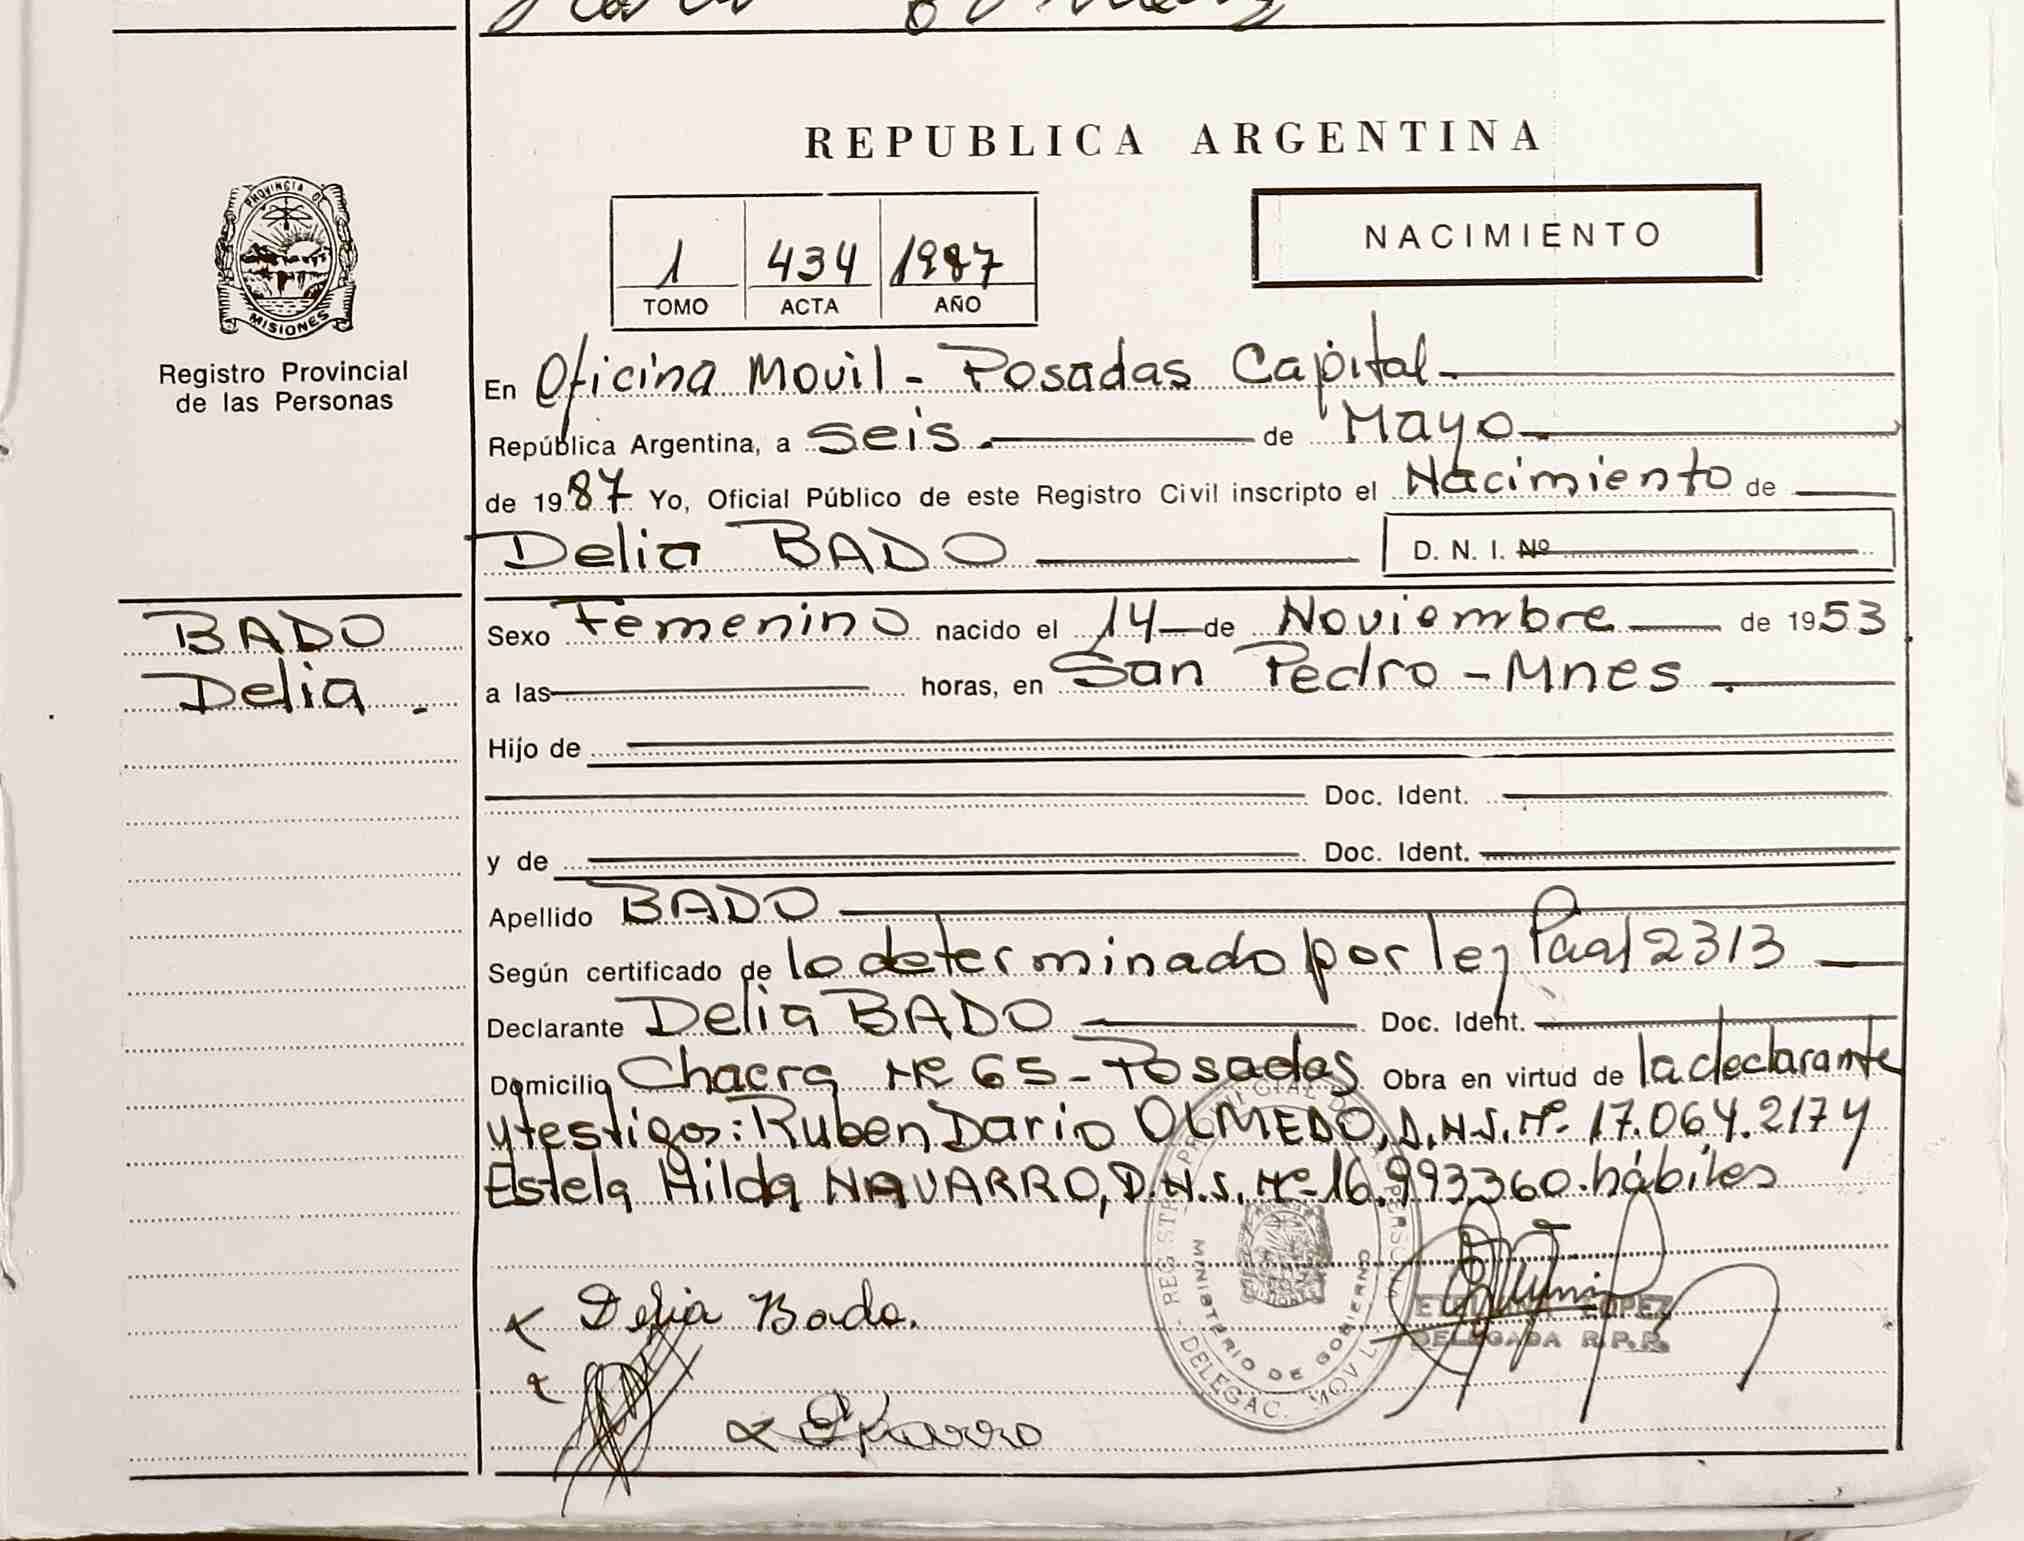 REPUBLICA ARGENTINA
PROVINCIA DE
MISIONES
Registro Provincial
de las Personas
1 434 1987
TOMO ACTA AÑO
NACIMIENTO
En Oficina Movil - Posadas Capital
República Argentina, a seis de Mayo
de 1987 Yo, Oficial Público de este Registro Civil inscripto el Nacimiento de
Delia BADO D. N. I. Nº
BADO
Delia.
Sexo Femenino nacido el 14 de Noviembre de 1953
a las horas, en San Pedro - Mnes.
Hijo de
Doc. Ident.
y de Doc. Ident.
Apellido BADO
Según certificado de lo determinado por ley Pcial 2313
Declarante Delia BADO Doc. Ident.
Domicilio Chacra Nº 65 - Posadas Obra en virtud de la declarante
y testigos: Ruben Dario OLMEDO, D.N.I. Nº 17.064.217 y
Estela Hilda NAVARRO, D.N.I. Nº 16.993.360. hábiles
Delia Bado.
MINISTERIO DE GOBIERNO
LOPEZ
DELEGADA R.P.P.